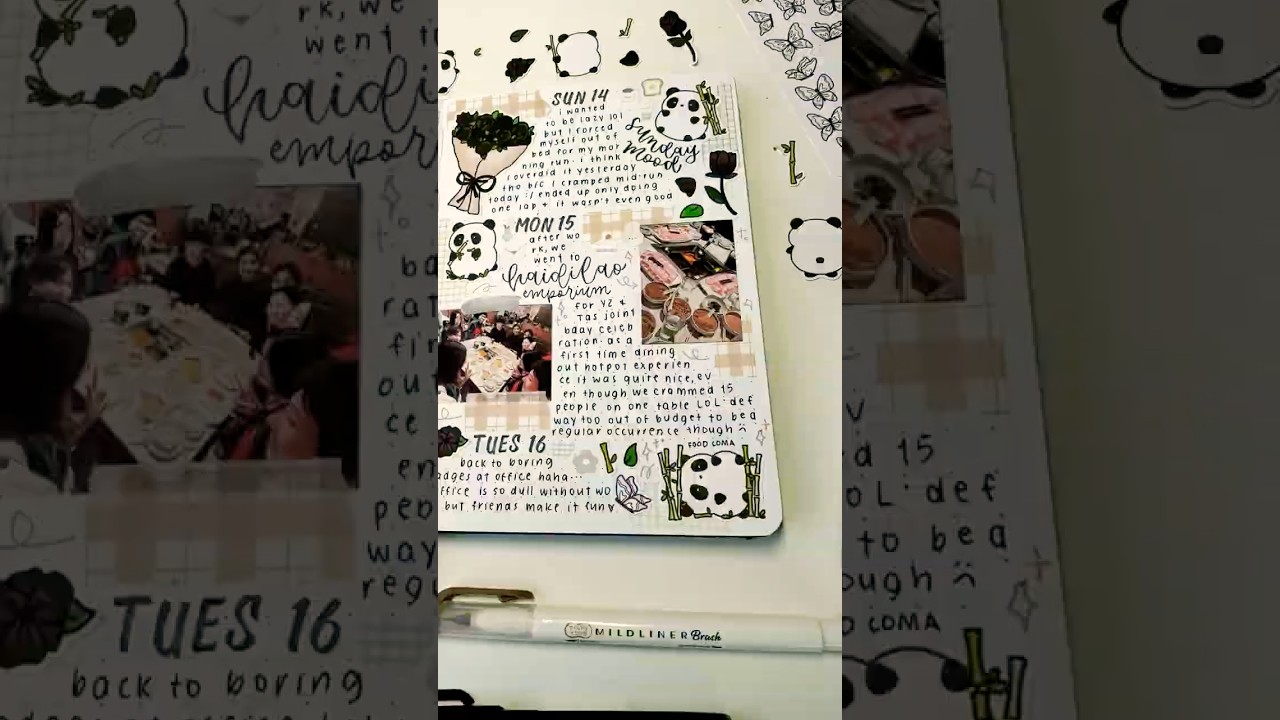 SUN 14
i wanted
to be lazy lol
but i forced
myself out of
bed for my mor
ning run. i think
i overdid it yesterday
tho b/c i cramped midrun
today :/ ended up only doing
one lap + it wasn't even good
Sunday
mood
MON 15
after wo
rk, we
went to
haidilao
emporium
for YZ &
Tas joint
bday celeb
ration. as a
first time dining
out hotpot experien
ce it was quite nice, ev
en though we crammed 15
people on one table LOL. def
way too out of budget to be a
regular occurrence though
FOOD COMA
TUES 16
back to boring
adges at office haha...
ffice is so dull without wo
but friends make it fun
MILDLINER Brush
rk, we
went t
haidi
empor
ba
rat
fir
out
ce
en
peo
way
regu
TUES 16
back to boring
v
d 15
oL. def
to be a
ough
COMA